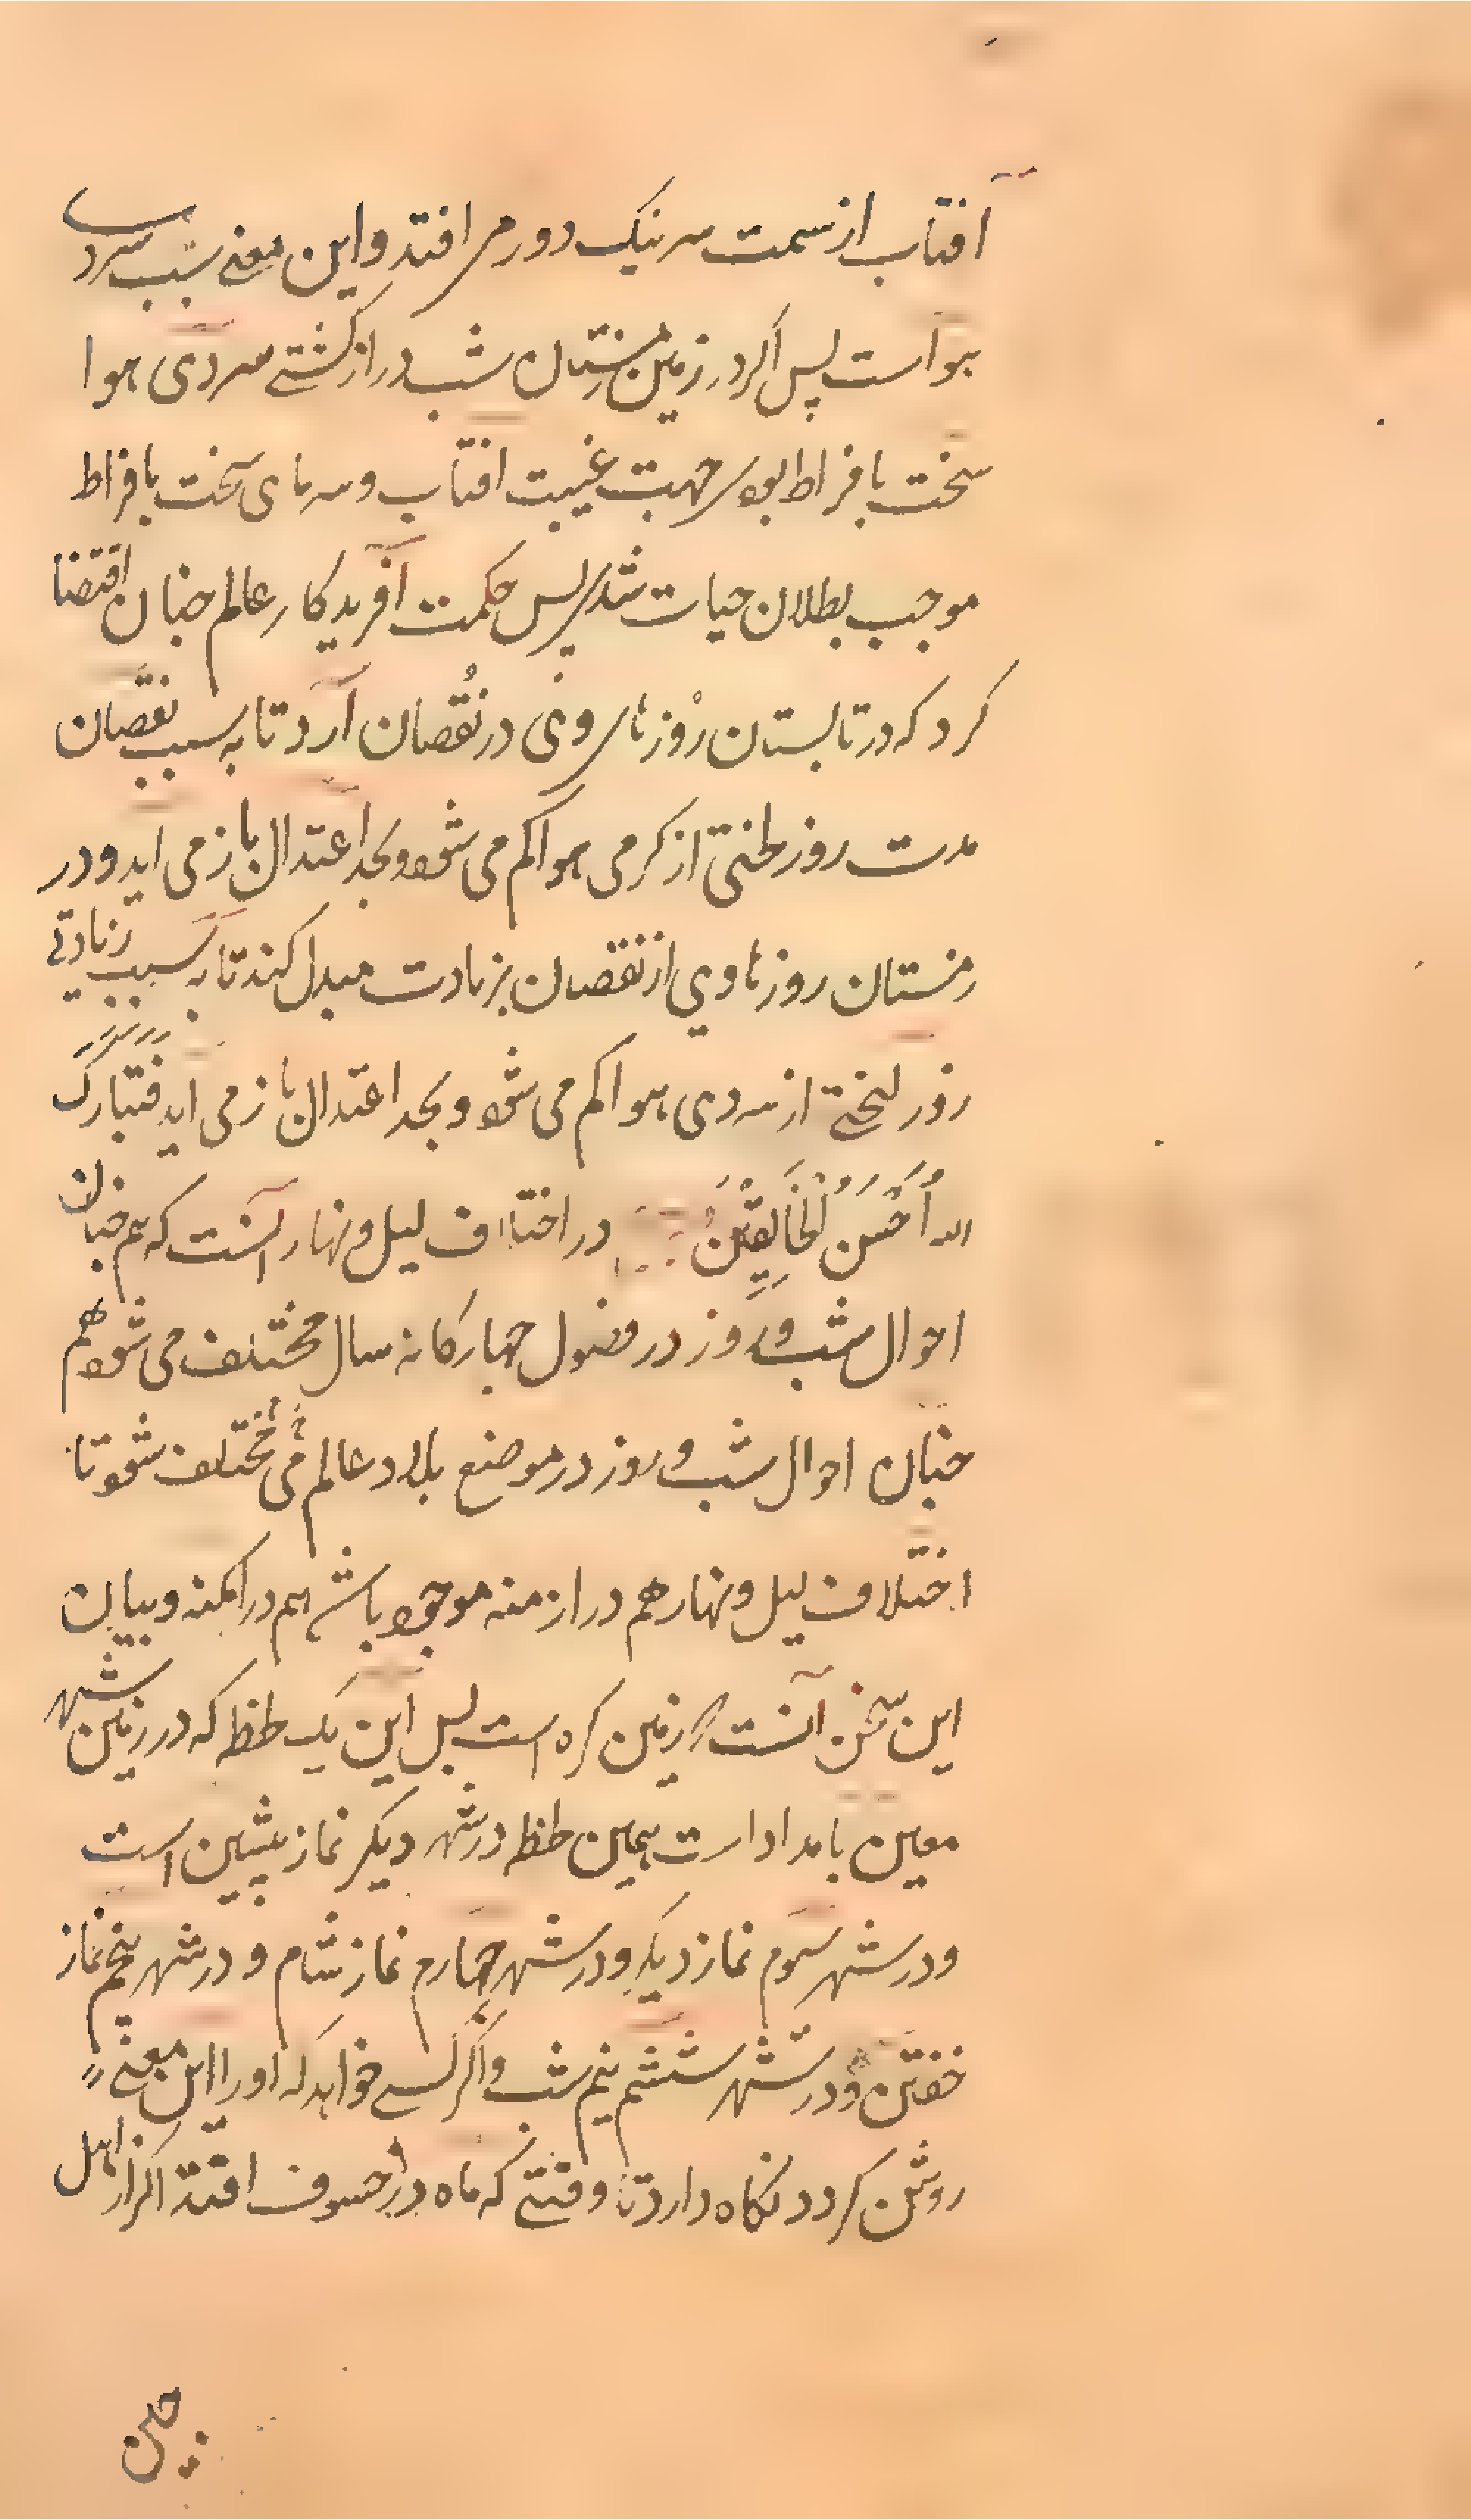 آفتاب از سمت سر نیک دور می افتد و این معنی سبب سردی
هواست پس اکر در زمین زمستان شب دراز کشتی سردی هوا
سخت بافراط بودی جهت غیبت افتاب و سرمای سخت بافراط
موجب بطلان حیات شدی پس حکمت آفریدکار عالم چنان اقتضا
کرد که در تابستان روزهای وی در نقصان آرد تا به سبب نقصان
مدت روز لختی از کرمی هوا کم می شود و بحد اعتدال باز می اید و در
زمستان روزها وی از نقصان بزیادت مبدل کند تا به سبب زیادتی
روز لختی از سردی هوا کم می شود و بحد اعتدال باز می اید فتبارک
الله أحسن الخالقین در اختلاف لیل و نهار آنست که هم چنان
احوال شب و روز در فصول چهارکانه سال مختلف می شود هم
چنان احوال شب و روز در موضع بلاد عالم می مختلف شود تا
اختلاف لیل و نهار هم در ازمنه موجود باشد هم در امکنه و بیان
این سخن آنست که زمین کره است پس این یک لحظه که در زمین شهر
معین بامداد است همین لحظه در شهر دیکر نماز پیشین است
و در شهر سوم نماز دیکر و در شهر چهارم نماز شام و در شهر پنجم نماز
خفتن و در شهر ششم نیم شب و اکر کسی خواهد که اورا این معنی
روشن کردد نکاه دارد تا وقتی که ماه در خسوف افتد اکر از اهل
چین